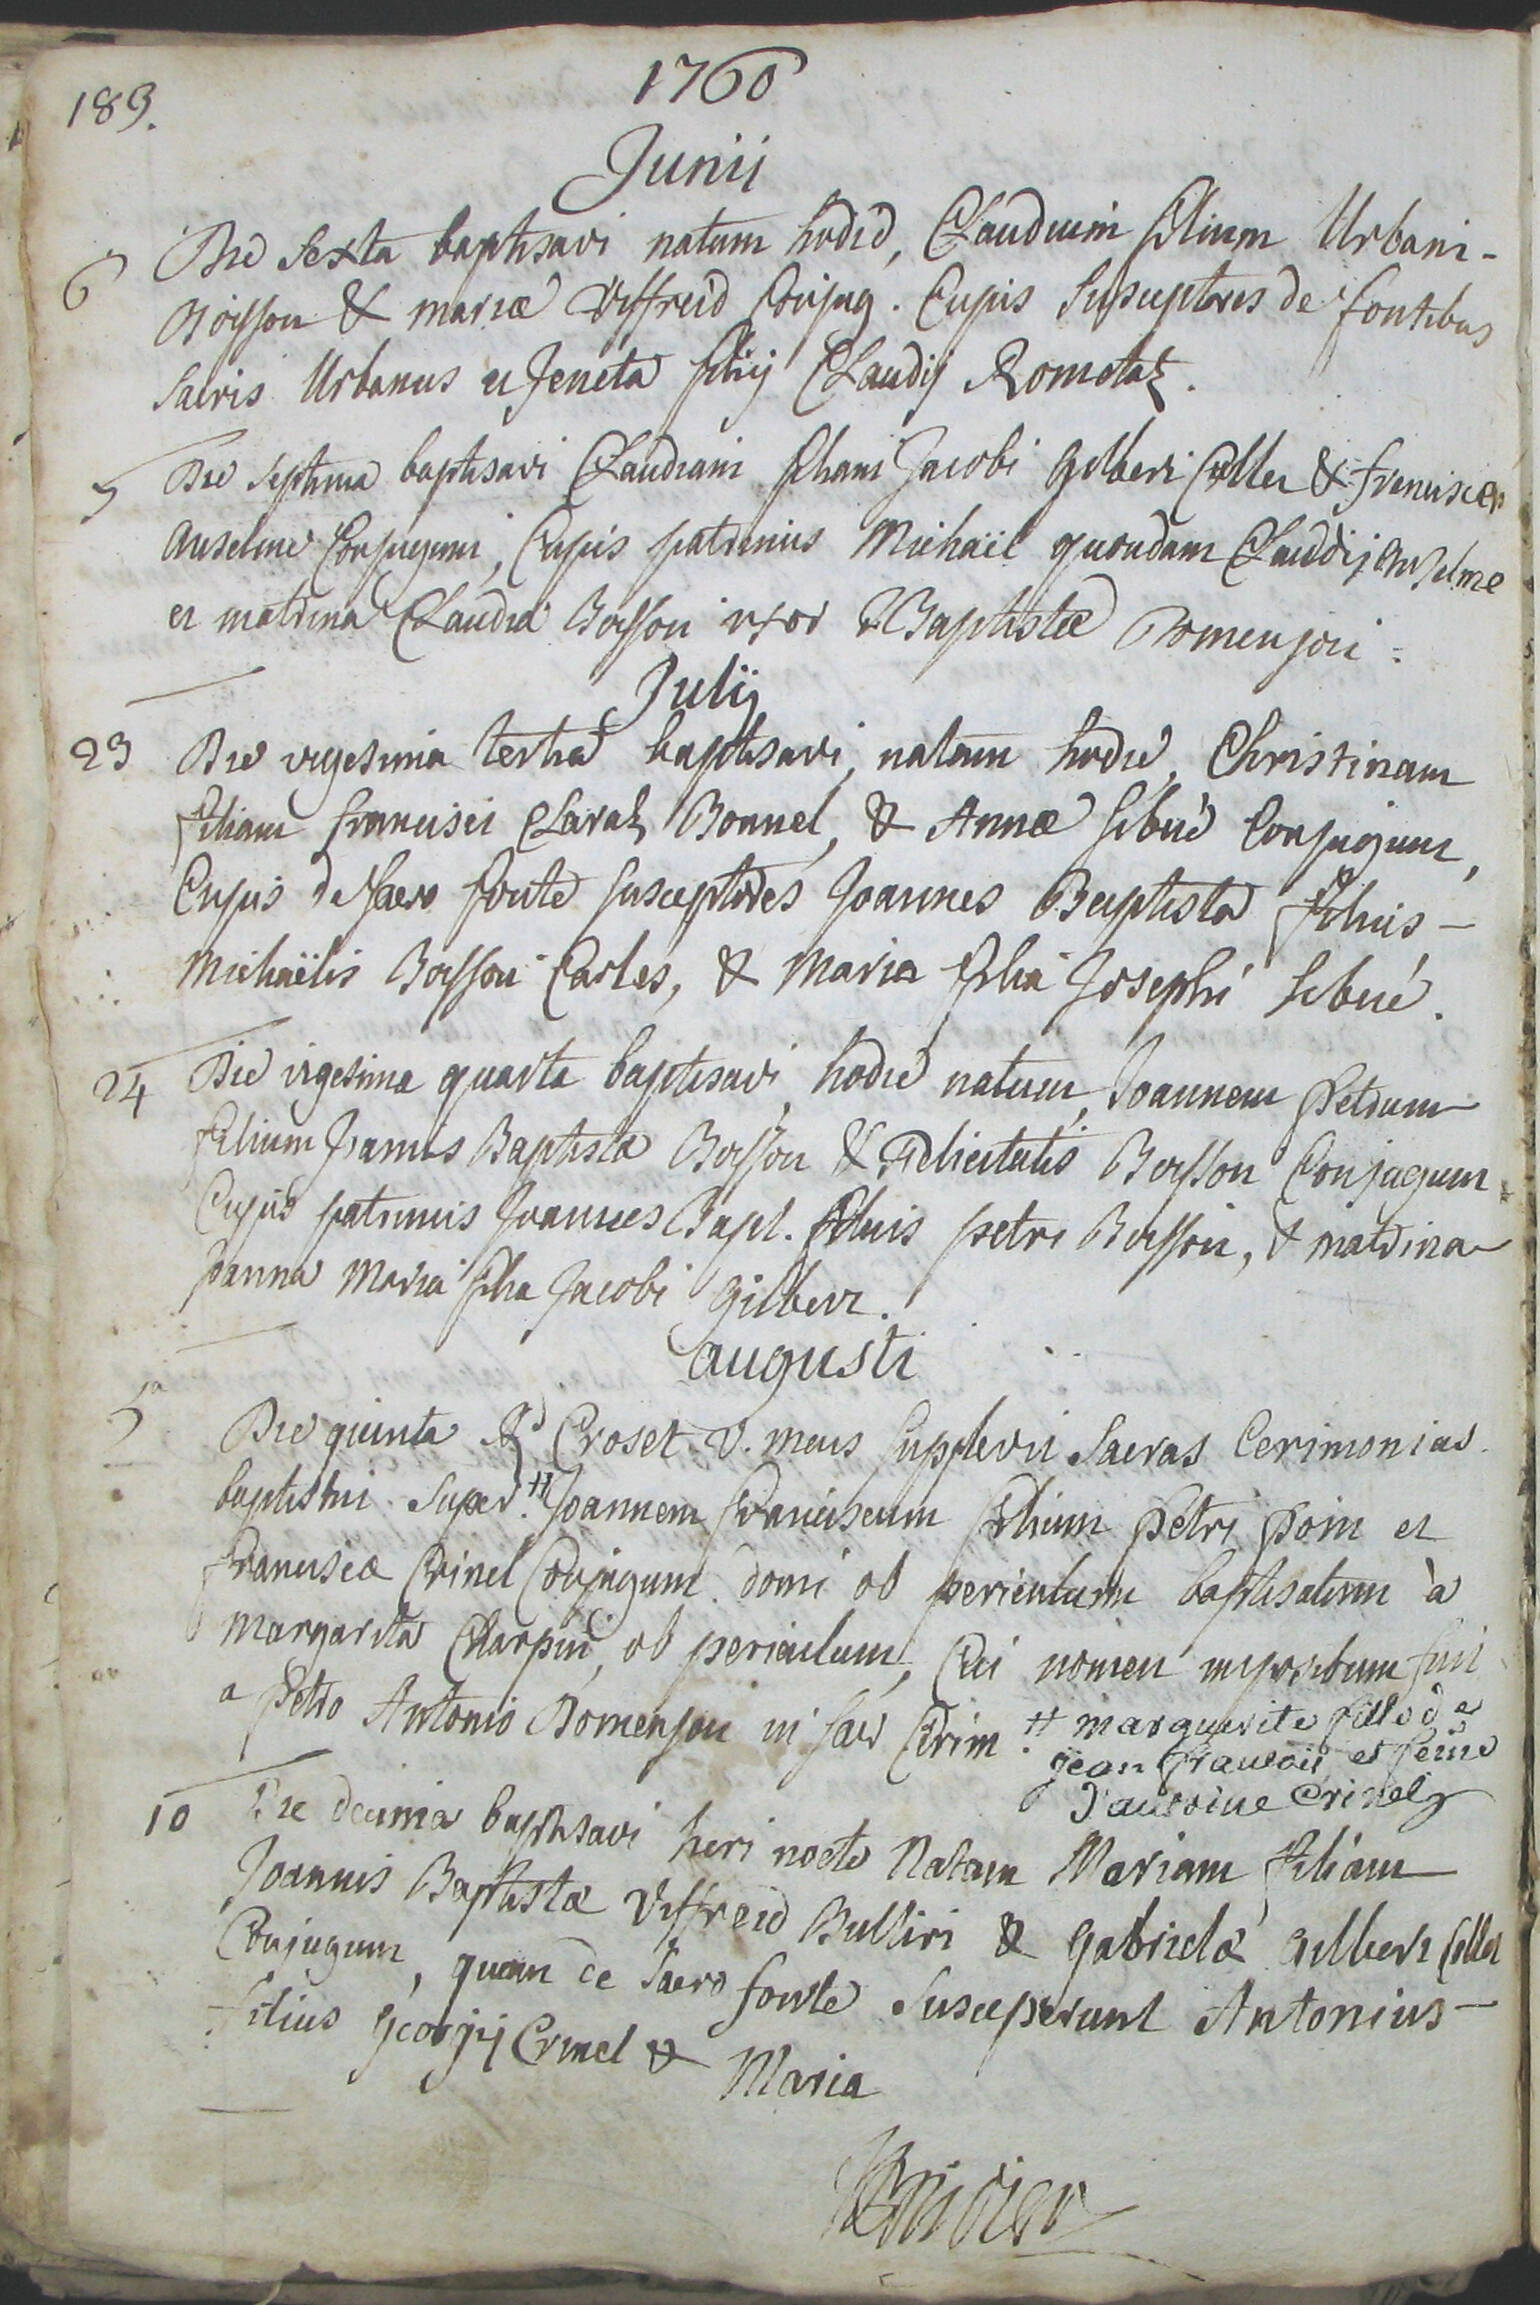 189.
1760
Junii
6 Die Sexta baptisavi natum hodie, Claudium filium Urbani -
Boisson & mariæ Viffreid Conjug. Cujus Susceptores de fontibus
Sacris Urbanus et Jeneta filij Claudij Romotaz.
7 Die septima baptisavi Claudiam filiam Jacobi gilbert Collet & franciscæ
Anselme Conjugum, Cujus patrinus Michaël quondam Claudij Anselme
et matrina Claudia Boisson uxor J Baptistæ Domenjon.
Julij
23 Die vigesima tertia baptisavi, natam hodie, Christinam
filiam francisci Claraz Bonnel, & Annæ Sibué Conjugum,
Cujus de sacro fonte susceptores Joannes Baptista filius -
Michaëlis Boisson Carles, & Maria filia Josephi Sibué.
24 Die vigesima quarta baptisavi, hodie natum, Joannem Petrum
filium Joannis Baptistæ Boisson & felicitatis Boisson Conjugum.
Cujus patrinus Joannes Bapt. filius petri Boisson, & matrina
Joanna Maria filia Jacobi gilbert.
augusti
5a Die quinta Rd Croset V. meus Supplevit Sacras Cerimonias
baptismi Super # Joannem Franciscum filium Petri Poin et
Franciscæ Crinel Conjugum. domi ob periculum baptisatum à
Margarita Charpin, ob periculum, Cui nomen impositum fuit
a Petro Antonio Domenjon in sac Cerim. # marguerite fille de
jean francois et feue
d'antoine Crinel
10 Die decima baptisavi heri nocte Natam Mariam filiam
Joannis Baptistæ Viffreid Bulliri & gabrielæ gilbert Collet
Conjugum, quam de Sacro fonte Susceperunt Antonius -
filius georgij Crinel & Maria